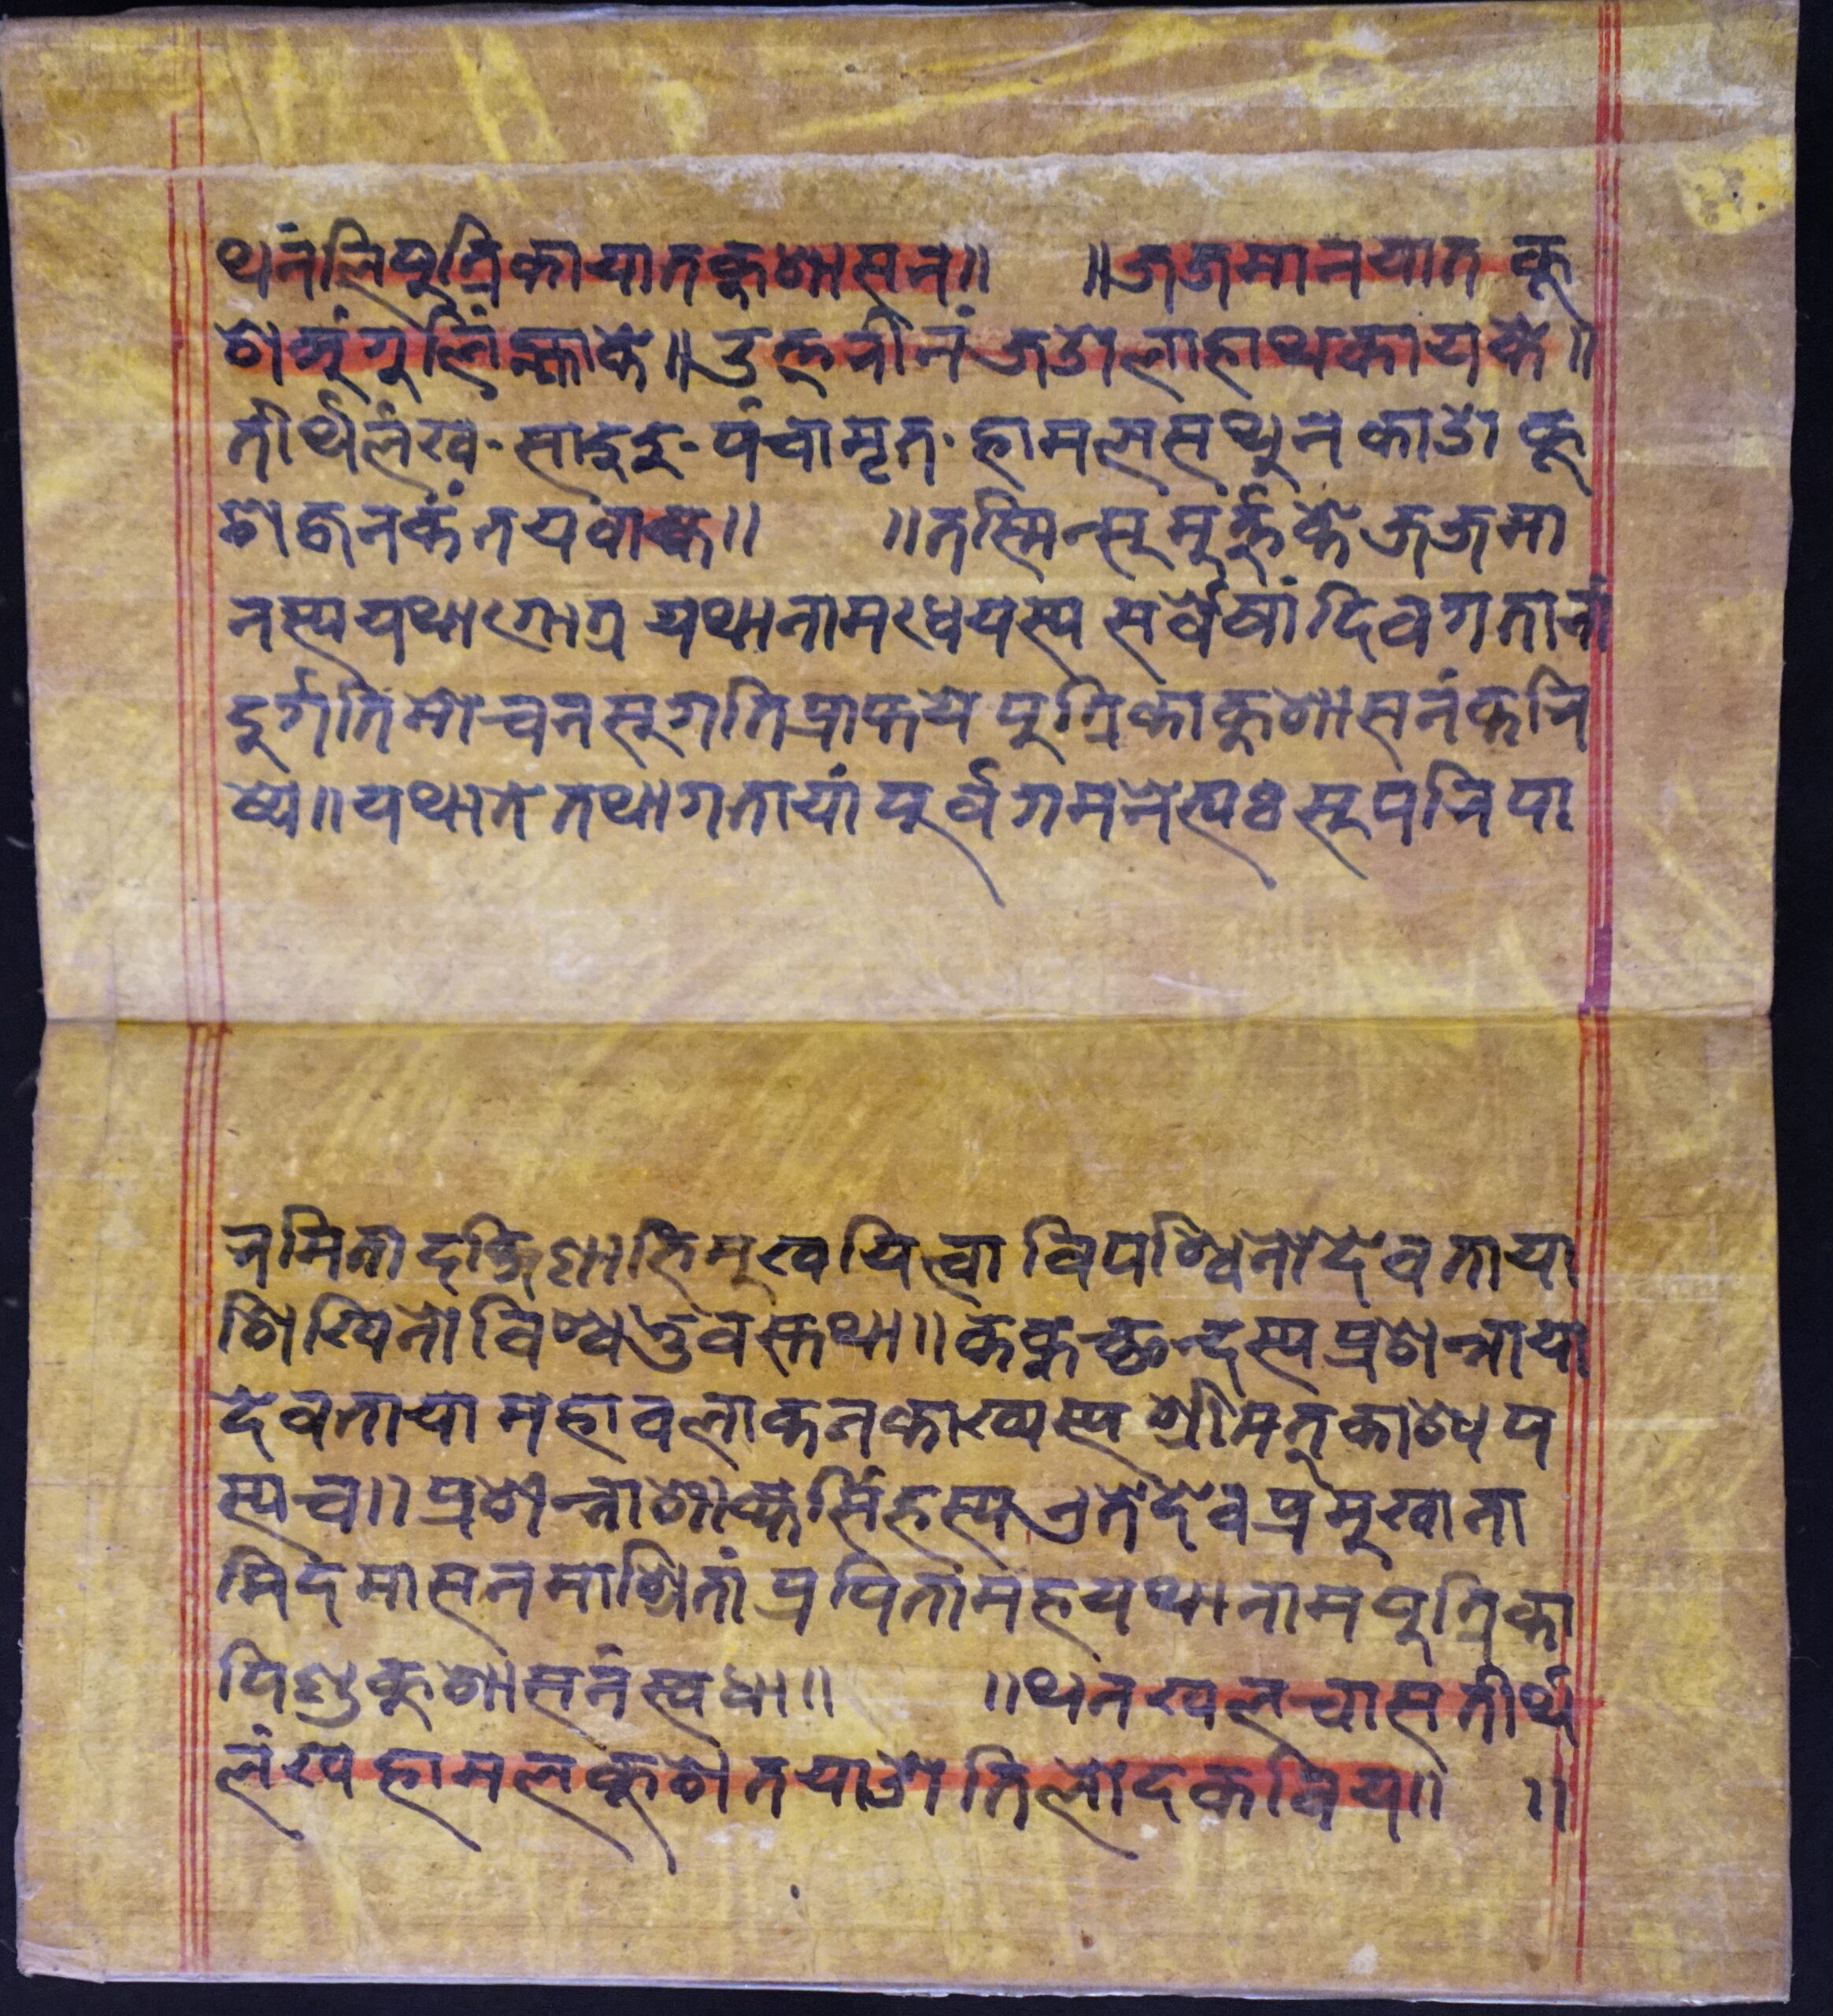 थनंलि पुत्रिकायात कुशासन॥ ॥जजमानयात कू
शअंगुलिं ह्याके॥ उत्तरीनं जओलाहाथकायके॥
तीर्थलंख- सादुदु- पंचामृत- हामलस थुनकाओ कू
श जनकं तय वाक्य॥ ॥तस्मिन्सुमुर्हुर्त्ते जजमा
नस्य यथागोत्र यथानामधेयस्य सर्वेषां दिवगतानां
दुर्गति मोचन सुगति प्राप्तये पुत्रिका कुशासनं करि
ष्ये॥ यथाते तथागतायां पूर्वगमनेत्यध सूपरि पा
नमिता दक्षिणाभिमुखयित्वा विपश्विनो देवताया
शिखिनो विश्वभुवस्तथा॥ ककुच्छन्दस्य प्रशेन्नाया
देवताया महावला कनकाख्यस्य श्रीमत् काश्यप
स्यच॥ प्रशेन्ना शाक्यसिंहस्य एते देव प्रमुखाना
मिदमासनमाश्रितां प्रपितांमह यथानाम पुत्रिका
पिण्ड कुशासनं स्वधा॥ ॥थन खलचास तीर्थ
लंख हामल कुश तयाओ तिलोदक विय॥ ॥